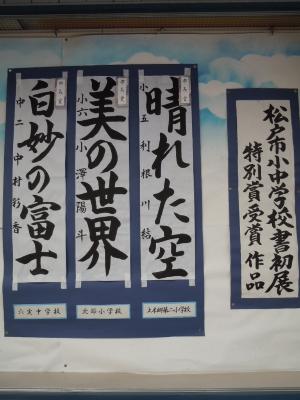 松戸市小中学校書初展
特別賞受賞作品
晴れた空
小五 利根川 結
美の世界
小六 小澤陽斗
白妙の富士
中二 中村彩香
上本郷第二小学校
北部小学校
六実中学校